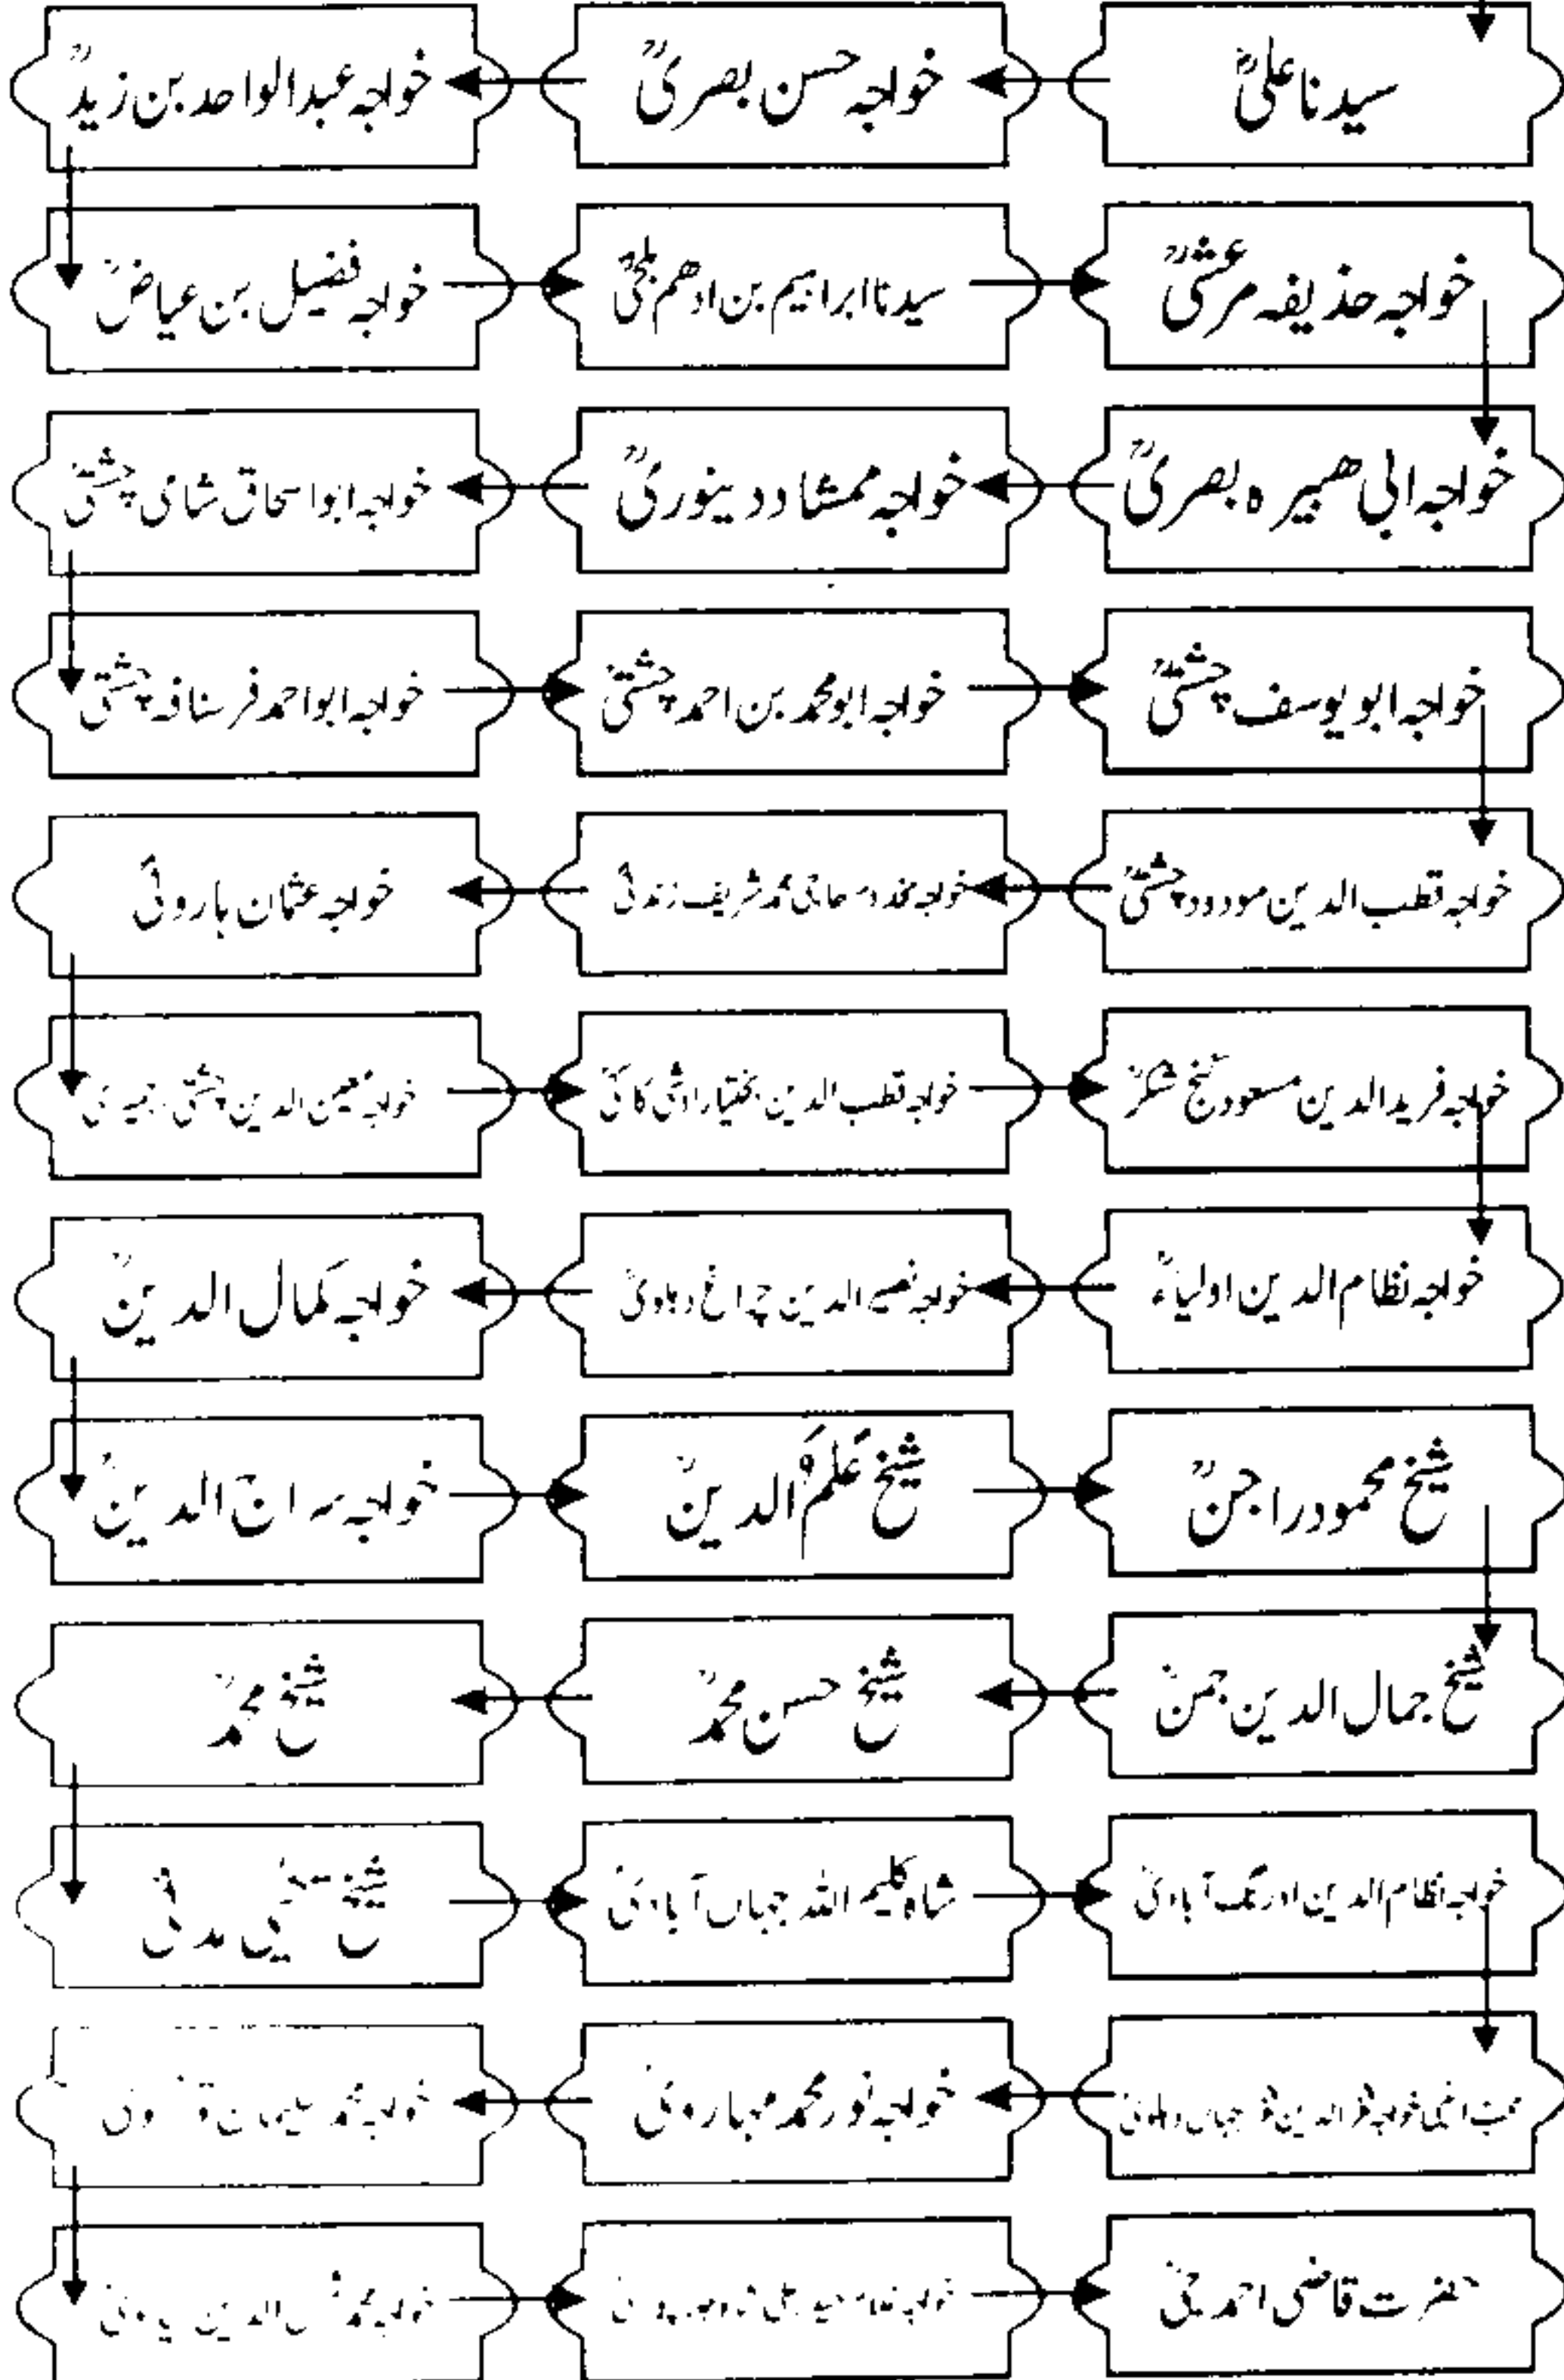 سیدنا علیؓ
خواجہ حسن بصریؒ
خواجہ عبدالواحد بن زیدؒ
خواجہ فضیل بن عیاضؒ
سیدنا ابراہیم بن ادھم بلخیؒ
خواجہ حذیفہ مرعشیؒ
خواجہ ابی ھبیرہ بصریؒ
خواجہ ممشاد دینوریؒ
خواجہ ابو اسحاق شامی چشتیؒ
خواجہ ابو احمد فرسنافہ چشتیؒ
خواجہ ابو محمد بن احمد چشتیؒ
خواجہ ابو یوسف چشتیؒ
خواجہ قطب الدین مودود چشتیؒ
خواجہ مخدوم حاجی محمد شریف زندنیؒ
خواجہ عثمان ہارونیؒ
خواجہ معین الدین چشتی اجمیریؒ
خواجہ قطب الدین بختیار اوشی کاکیؒ
خواجہ فرید الدین مسعود گنج شکرؒ
خواجہ نظام الدین اولیاءؒ
خواجہ نصیر الدین چراغ دہلویؒ
خواجہ کمال الدینؒ
خواجہ سراج الدینؒ
شیخ عَلَمُ الدینؒ
شیخ محمود راجنؒ
شیخ جمال الدین جمنؒ
شیخ حسن محمدؒ
شیخ محمدؒ
شیخ یحیٰی مدنیؒ
شاہ کلیم اللہ جہاں آبادیؒ
خواجہ نظام الدین اورنگ آبادیؒ
محب النبی خواجہ فخر الدین فخر جہاں دہلویؒ
خواجہ نور محمد مہارویؒ
خواجہ محمد سلیمان تونسویؒ
خواجہ محمد شمس الدین سیالویؒ
خواجہ غلام حیدر علی شاہ جلالپوریؒ
حضرت قاضی احمد جیؒ